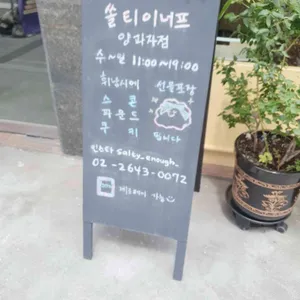 쏠티이너프
양과자점
수~월 11:00~19:00
휘낭시에 선물포장
스콘
파운드
쿠키 됩니다
인스타 salty_enough_
02-2643-0072